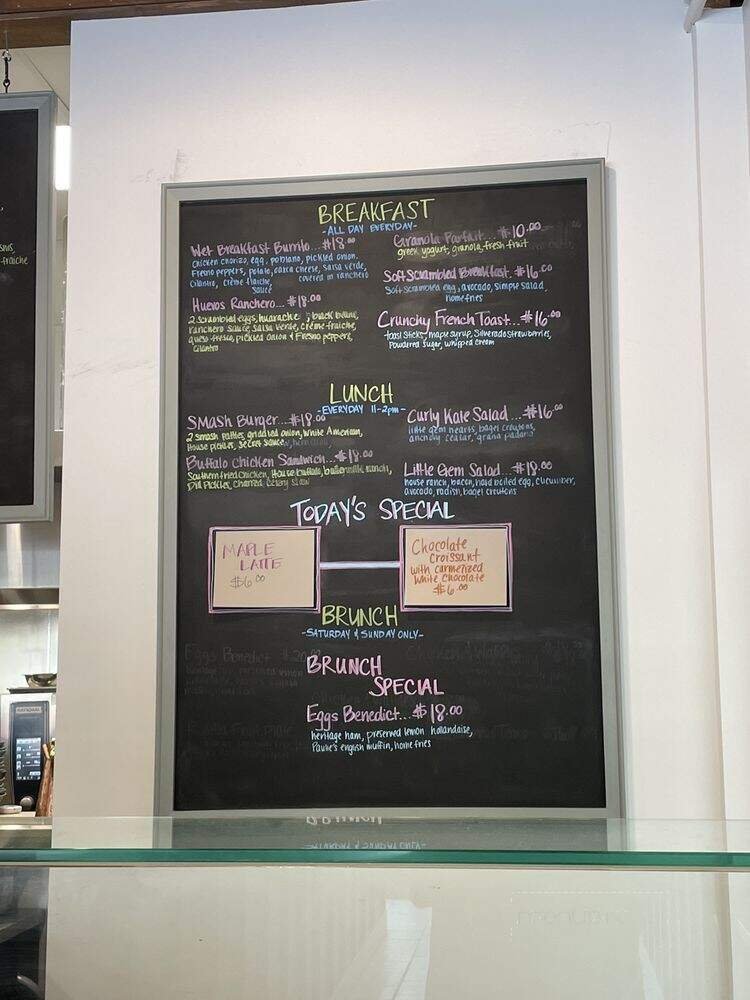 BREAKFAST
-ALL DAY EVERYDAY-
Wet Breakfast Burrito...$18.00
chicken chorizo, egg, poblano, pickled onion
Fresno peppers, potato, oaxaca cheese, salsa verde,
cilantro, crème fraiche covered in ranchero
sauce
Huevos Ranchero...$18.00
2 scrambled eggs, huarache, black beans,
ranchero sauce, salsa verde, crème fraiche,
queso fresco, pickled onion & Fresno peppers,
cilantro
Granola Parfait...$10.00
greek yogurt, granola, fresh fruit
Soft Scrambled Breakfast..$16.00
Soft scrambled egg, avocado, simple salad,
home fries
Crunchy French Toast...$16.00
toast sticks, maple syrup, Silverado strawberries,
Powdered sugar, whipped cream
LUNCH
-EVERYDAY 11-2pm-
SMASH Burger...$18.00
2 smash patties, griddled onion, White American,
House pickles, secret sauce
Buffalo chicken Sandwich...$18.00
Southern fried chicken, House buffalo, buttermilk ranch,
Dill Pickles, charred celery slaw
Curly Kale Salad...$16.00
little gem hearts, bagel croutons,
anchovy ceasar, grana padano
Little Gem Salad...$18.00
house ranch, bacon, hard boiled egg, cucumber,
avocado, radish, bagel croutons
TODAY'S SPECIAL
MAPLE
LATTE
$6.00
Chocolate
Croissant
with carmerized
White Chocolate
$6.00
BRUNCH
-SATURDAY & SUNDAY ONLY-
BRUNCH
SPECIAL
Eggs Benedict...$18.00
heritage ham, preserved lemon hollandaise,
Paulie's english muffin, home fries